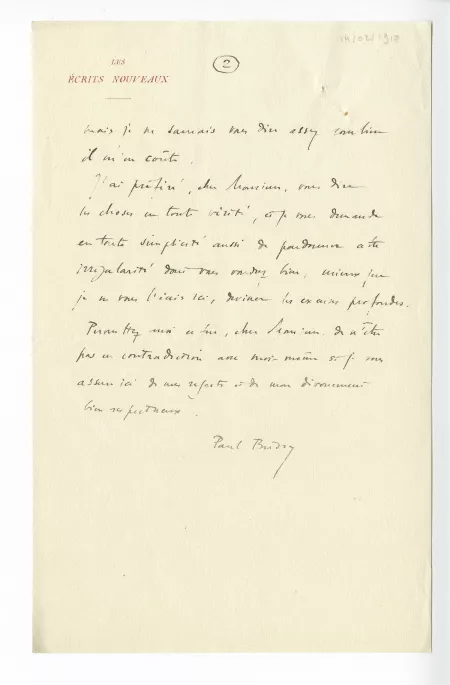 14/02/1918
LES
ÉCRITS NOUVEAUX
2
mais je ne saurais vous dire assez combien
il m'en coûte.
J'ai préféré, cher Monsieur, vous dire
les choses en toute vérité, et je vous demande
en toute simplicité aussi de pardonner cette
irrégularité dont vous voudrez bien, mieux que
je ne vous l'écris ici, deviner les excuses profondes.
Permettez moi enfin, cher Monsieur de n'être
pas en contradiction avec moi-même si je vous
assure ici de mes regrets et de mon dévouement
bien respectueux.
Paul Budry